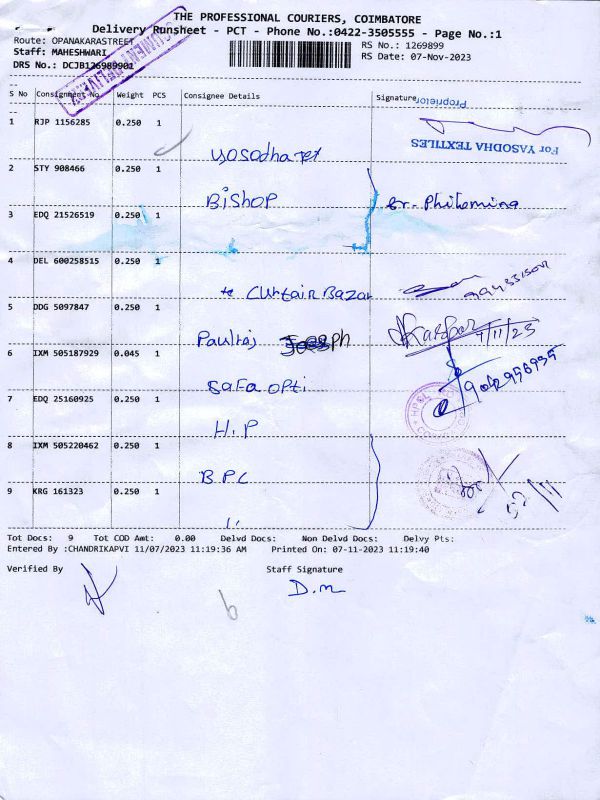 THE PROFESSIONAL COURIERS, COIMBATORE
Delivery Runsheet - PCT - Phone No.:0422-3505555 - Page No.:1
Route: OPANAKARASTREET
RS No.: 1269899
Staff: MAHESHWARI
RS Date: 07-Nov-2023
DRS No.: DCJB126989901
S No Consignment No. Weight PCS Consignee Details Signature
Proprietor
For YASODHA TEXTILES
1 RJP 1156285 0.250 1
yosodha tex
2 STY 908466 0.250 1
BiSHOP
Sr. Philomina
3 EDQ 21526519 0.250 1
4 DEL 600258515 0.250 1
te CURtaiR Bazar
5 DDG 5097847 0.250 1
Paulraj Joseph
7/11/23
6 IXM 505187929 0.045 1
Safa opti
9042956935
7 EDQ 25160925 0.250 1
H.P
8 IXM 505220462 0.250 1
BPC
9 KRG 161323 0.250 1
〃
Tot Docs: 9 Tot COD Amt: 0.00 Delvd Docs: Non Delvd Docs: Delvy Pts:
Entered By :CHANDRIKAPVI 11/07/2023 11:19:36 AM Printed On: 07-11-2023 11:19:40
Verified By Staff Signature
D.m
6